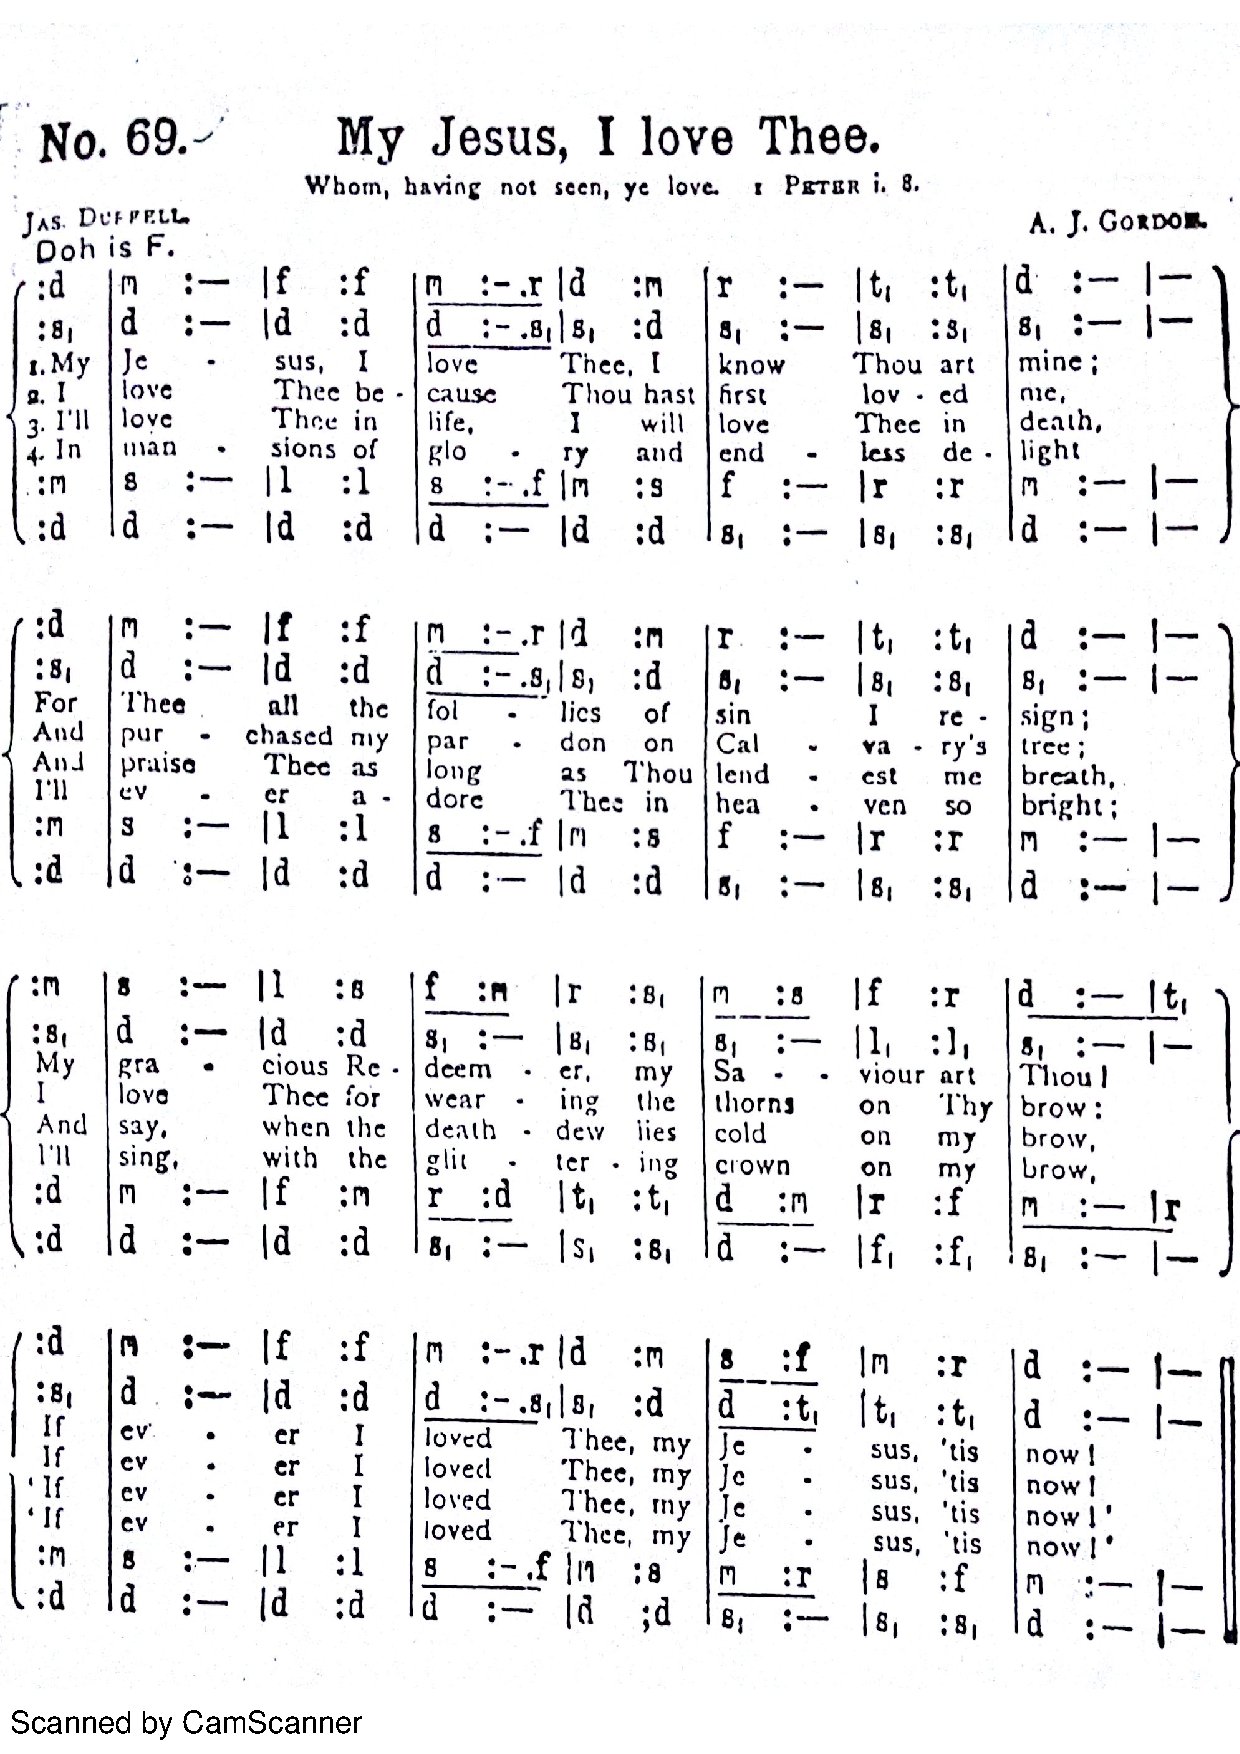 No. 69. My Jesus, I love Thee.
Whom, having not seen, ye love. 1 PETER i. 8.
JAS. DUFFELL. A. J. GORDON.
Doh is F.
:d |m :— |f :f |m :-.r |d :m |r :— |t₁ :t₁ |d :— |—
:s₁ |d :— |d :d |d :-.s₁ |s₁ :d |s₁ :— |s₁ :s₁ |s₁ :— |—
1. My Je - sus, I love Thee, I know Thou art mine;
2. I love Thee be - cause Thou hast first lov - ed me,
3. I'll love Thee in life, I will love Thee in death,
4. In man - sions of glo - ry and end - less de - light
:m |s :— |l :l |s :-.f |m :s |f :— |r :r |m :— |—
:d |d :— |d :d |d :— |d :d |s₁ :— |s₁ :s₁ |d :— |—
:d |m :— |f :f |m :-.r |d :m |r :— |t₁ :t₁ |d :— |—
:s₁ |d :— |d :d |d :-.s₁ |s₁ :d |s₁ :— |s₁ :s₁ |s₁ :— |—
For Thee all the fol - lies of sin I re - sign;
And pur - chased my par - don on Cal - va - ry's tree;
And praise Thee as long as Thou lend - est me breath,
I'll ev - er a - dore Thee in hea - ven so bright;
:m |s :— |l :l |s :-.f |m :s |f :— |r :r |m :— |—
:d |d :— |d :d |d :— |d :d |s₁ :— |s₁ :s₁ |d :— |—
:m |s :— |l :s |f :m |r :s₁ |m :s |f :r |d :— |t₁
:s₁ |d :— |d :d |s₁ :— |s₁ :s₁ |s₁ :— |l₁ :l₁ |s₁ :— |—
My gra - cious Re - deem - er, my Sa - - viour art Thou!
I love Thee for wear - ing the thorns on Thy brow:
And say, when the death - dew lies cold on my brow,
I'll sing, with the glit - ter - ing crown on my brow,
:d |m :— |f :m |r :d |t₁ :t₁ |d :m |r :f |m :— |r
:d |d :— |d :d |s₁ :— |s₁ :s₁ |d :— |f₁ :f₁ |s₁ :— |—
:d |m :— |f :f |m :-.r |d :m |s :f |m :r |d :— |—
:s₁ |d :— |d :d |d :-.s₁ |s₁ :d |d :t₁ |t₁ :t₁ |d :— |—
If ev - er I loved Thee, my Je - sus, 'tis now!
If ev - er I loved Thee, my Je - sus, 'tis now!
'If ev - er I loved Thee, my Je - sus, 'tis now!'
'If ev - er I loved Thee, my Je - sus, 'tis now!'
:m |s :— |l :l |s :-.f |m :s |m :r |s :f |m :— |—
:d |d :— |d :d |d :— |d ;d |s₁ :— |s₁ :s₁ |d :— |—
Scanned by CamScanner